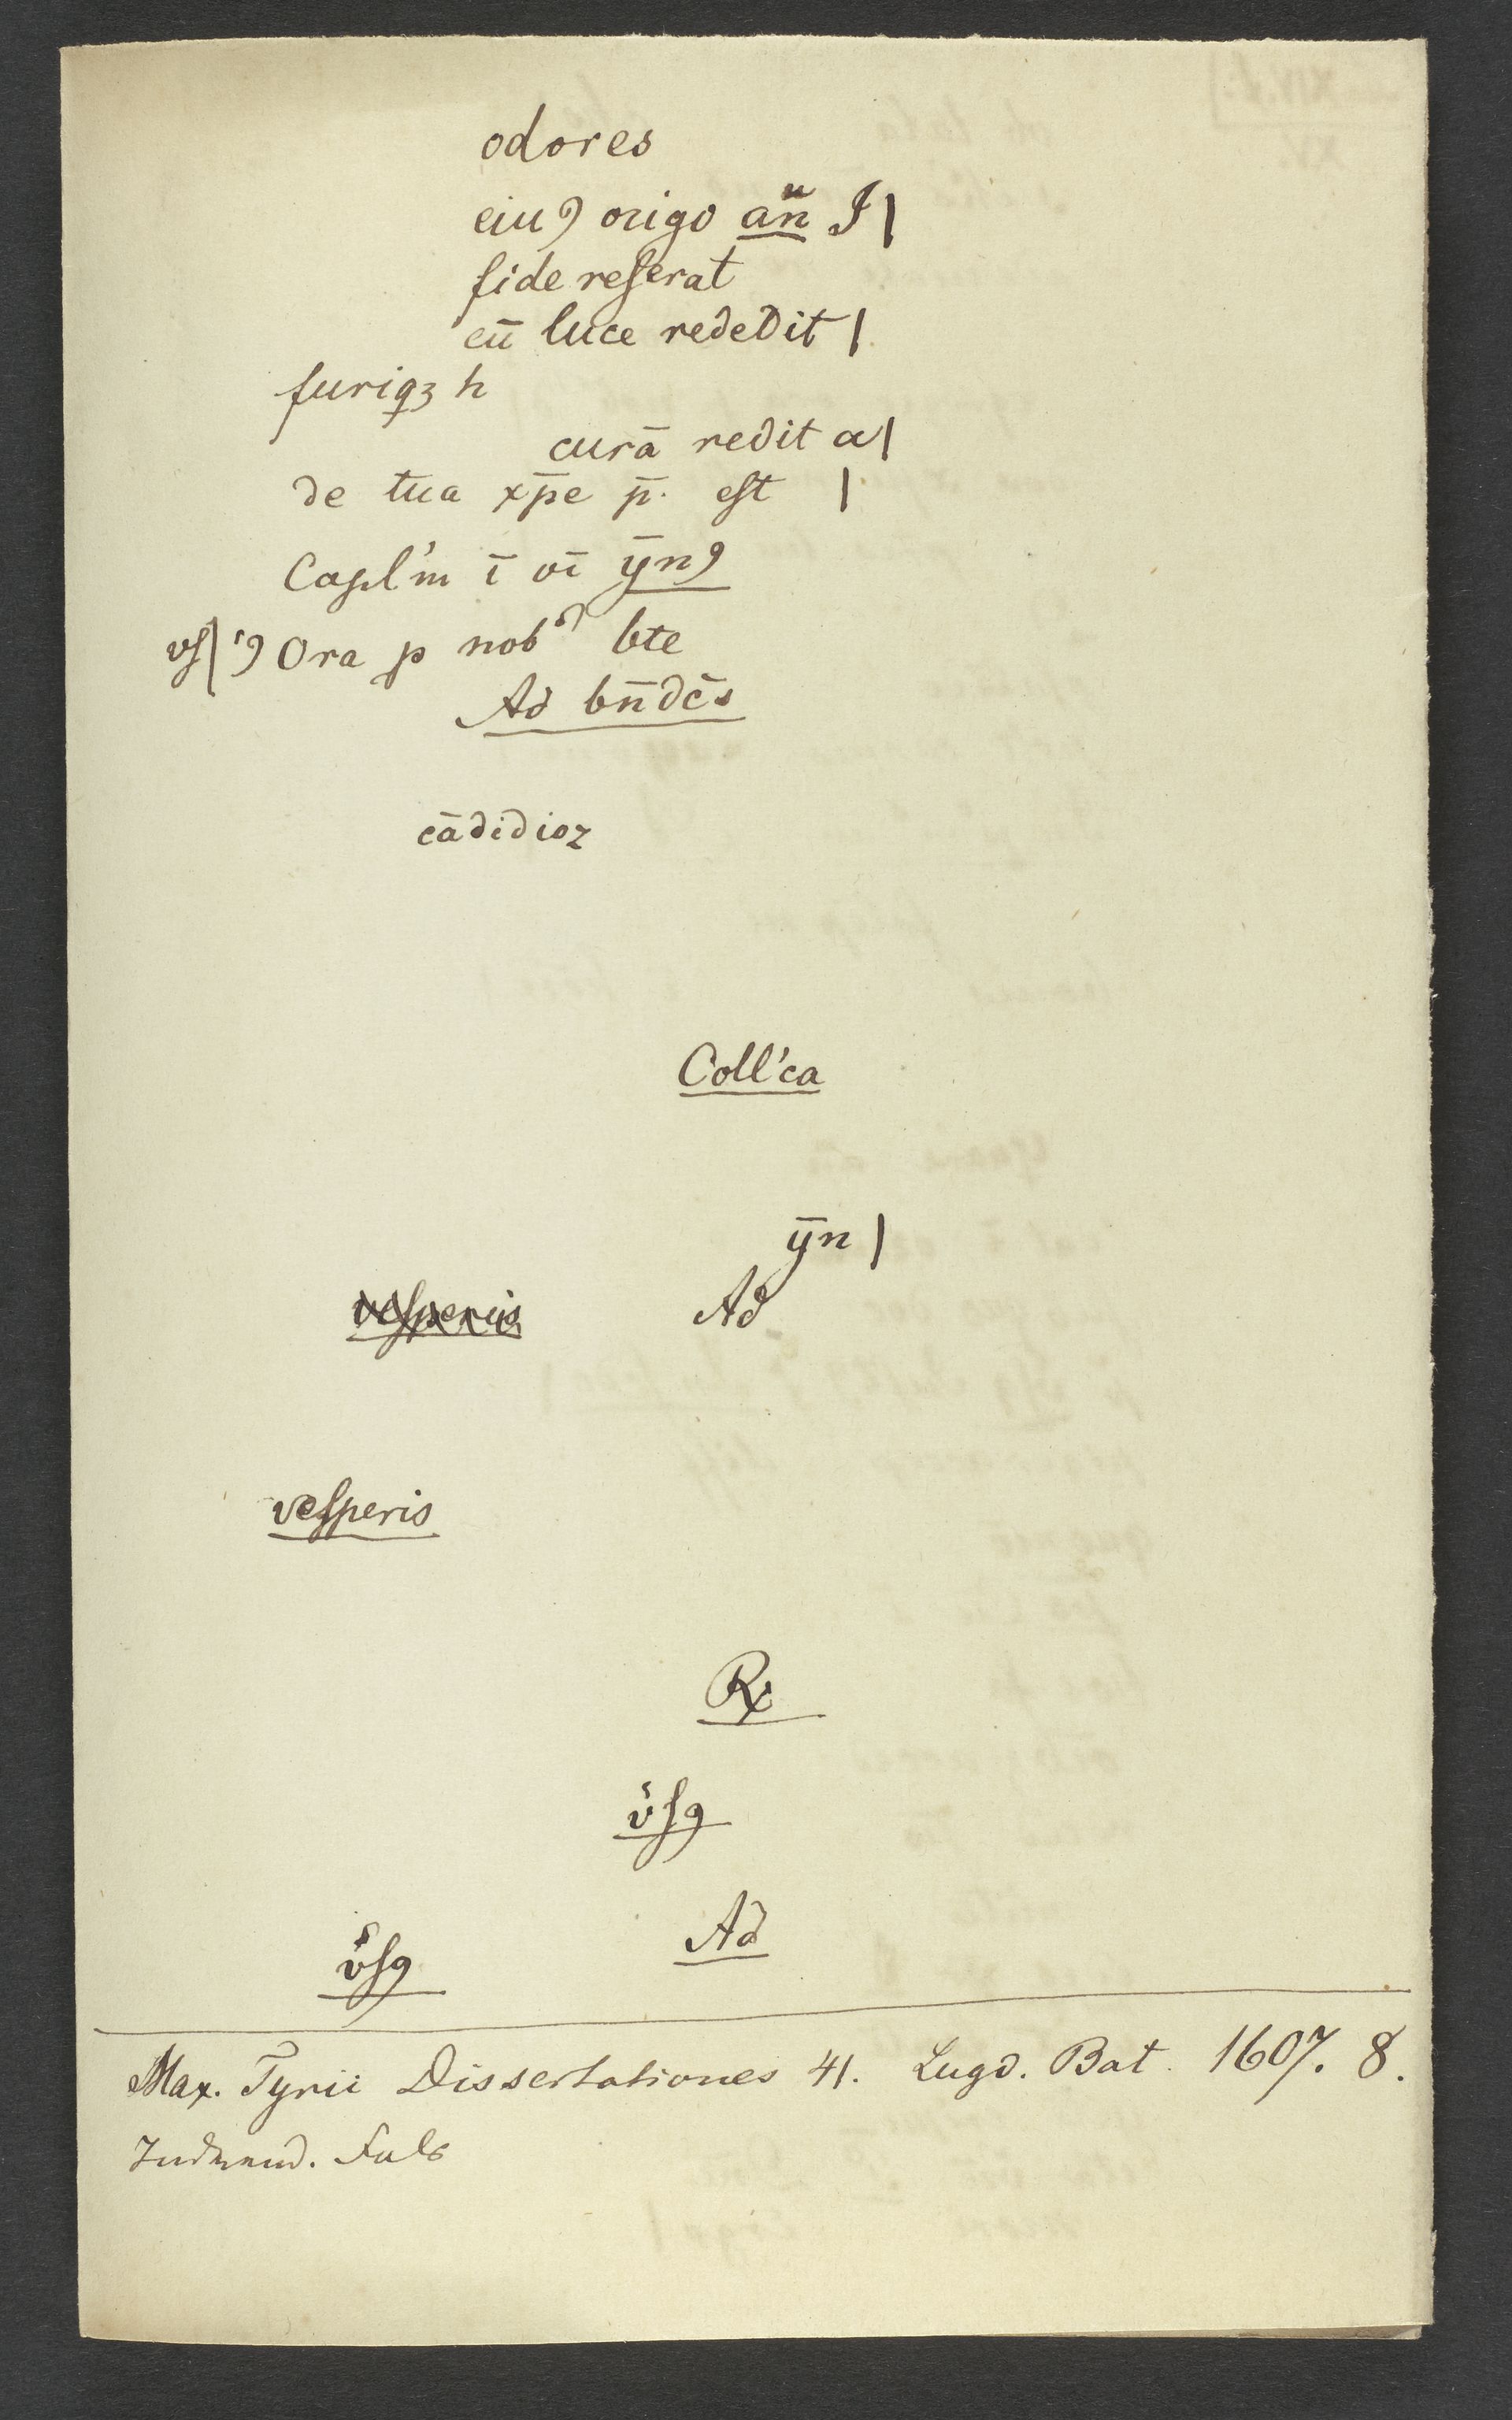 odores
eiuꝯ origo an̄ J|
fide reſerat
cū luce redeðit |
furiqꝫ h
curā redit a|
de tua xp̄e p̄. eſt |
Capl'm ī vī ȳnꝯ
Ora p nob bte
Ad bn̄dc̄s
cādidioꝛ
Coll'ca
ȳn |
Ad
veſperis
veſperis
R
vſꝯ
Ad
vſꝯ
Max. Tyrii Dissertationes 41. Lugd. Bat. 1607. 8.